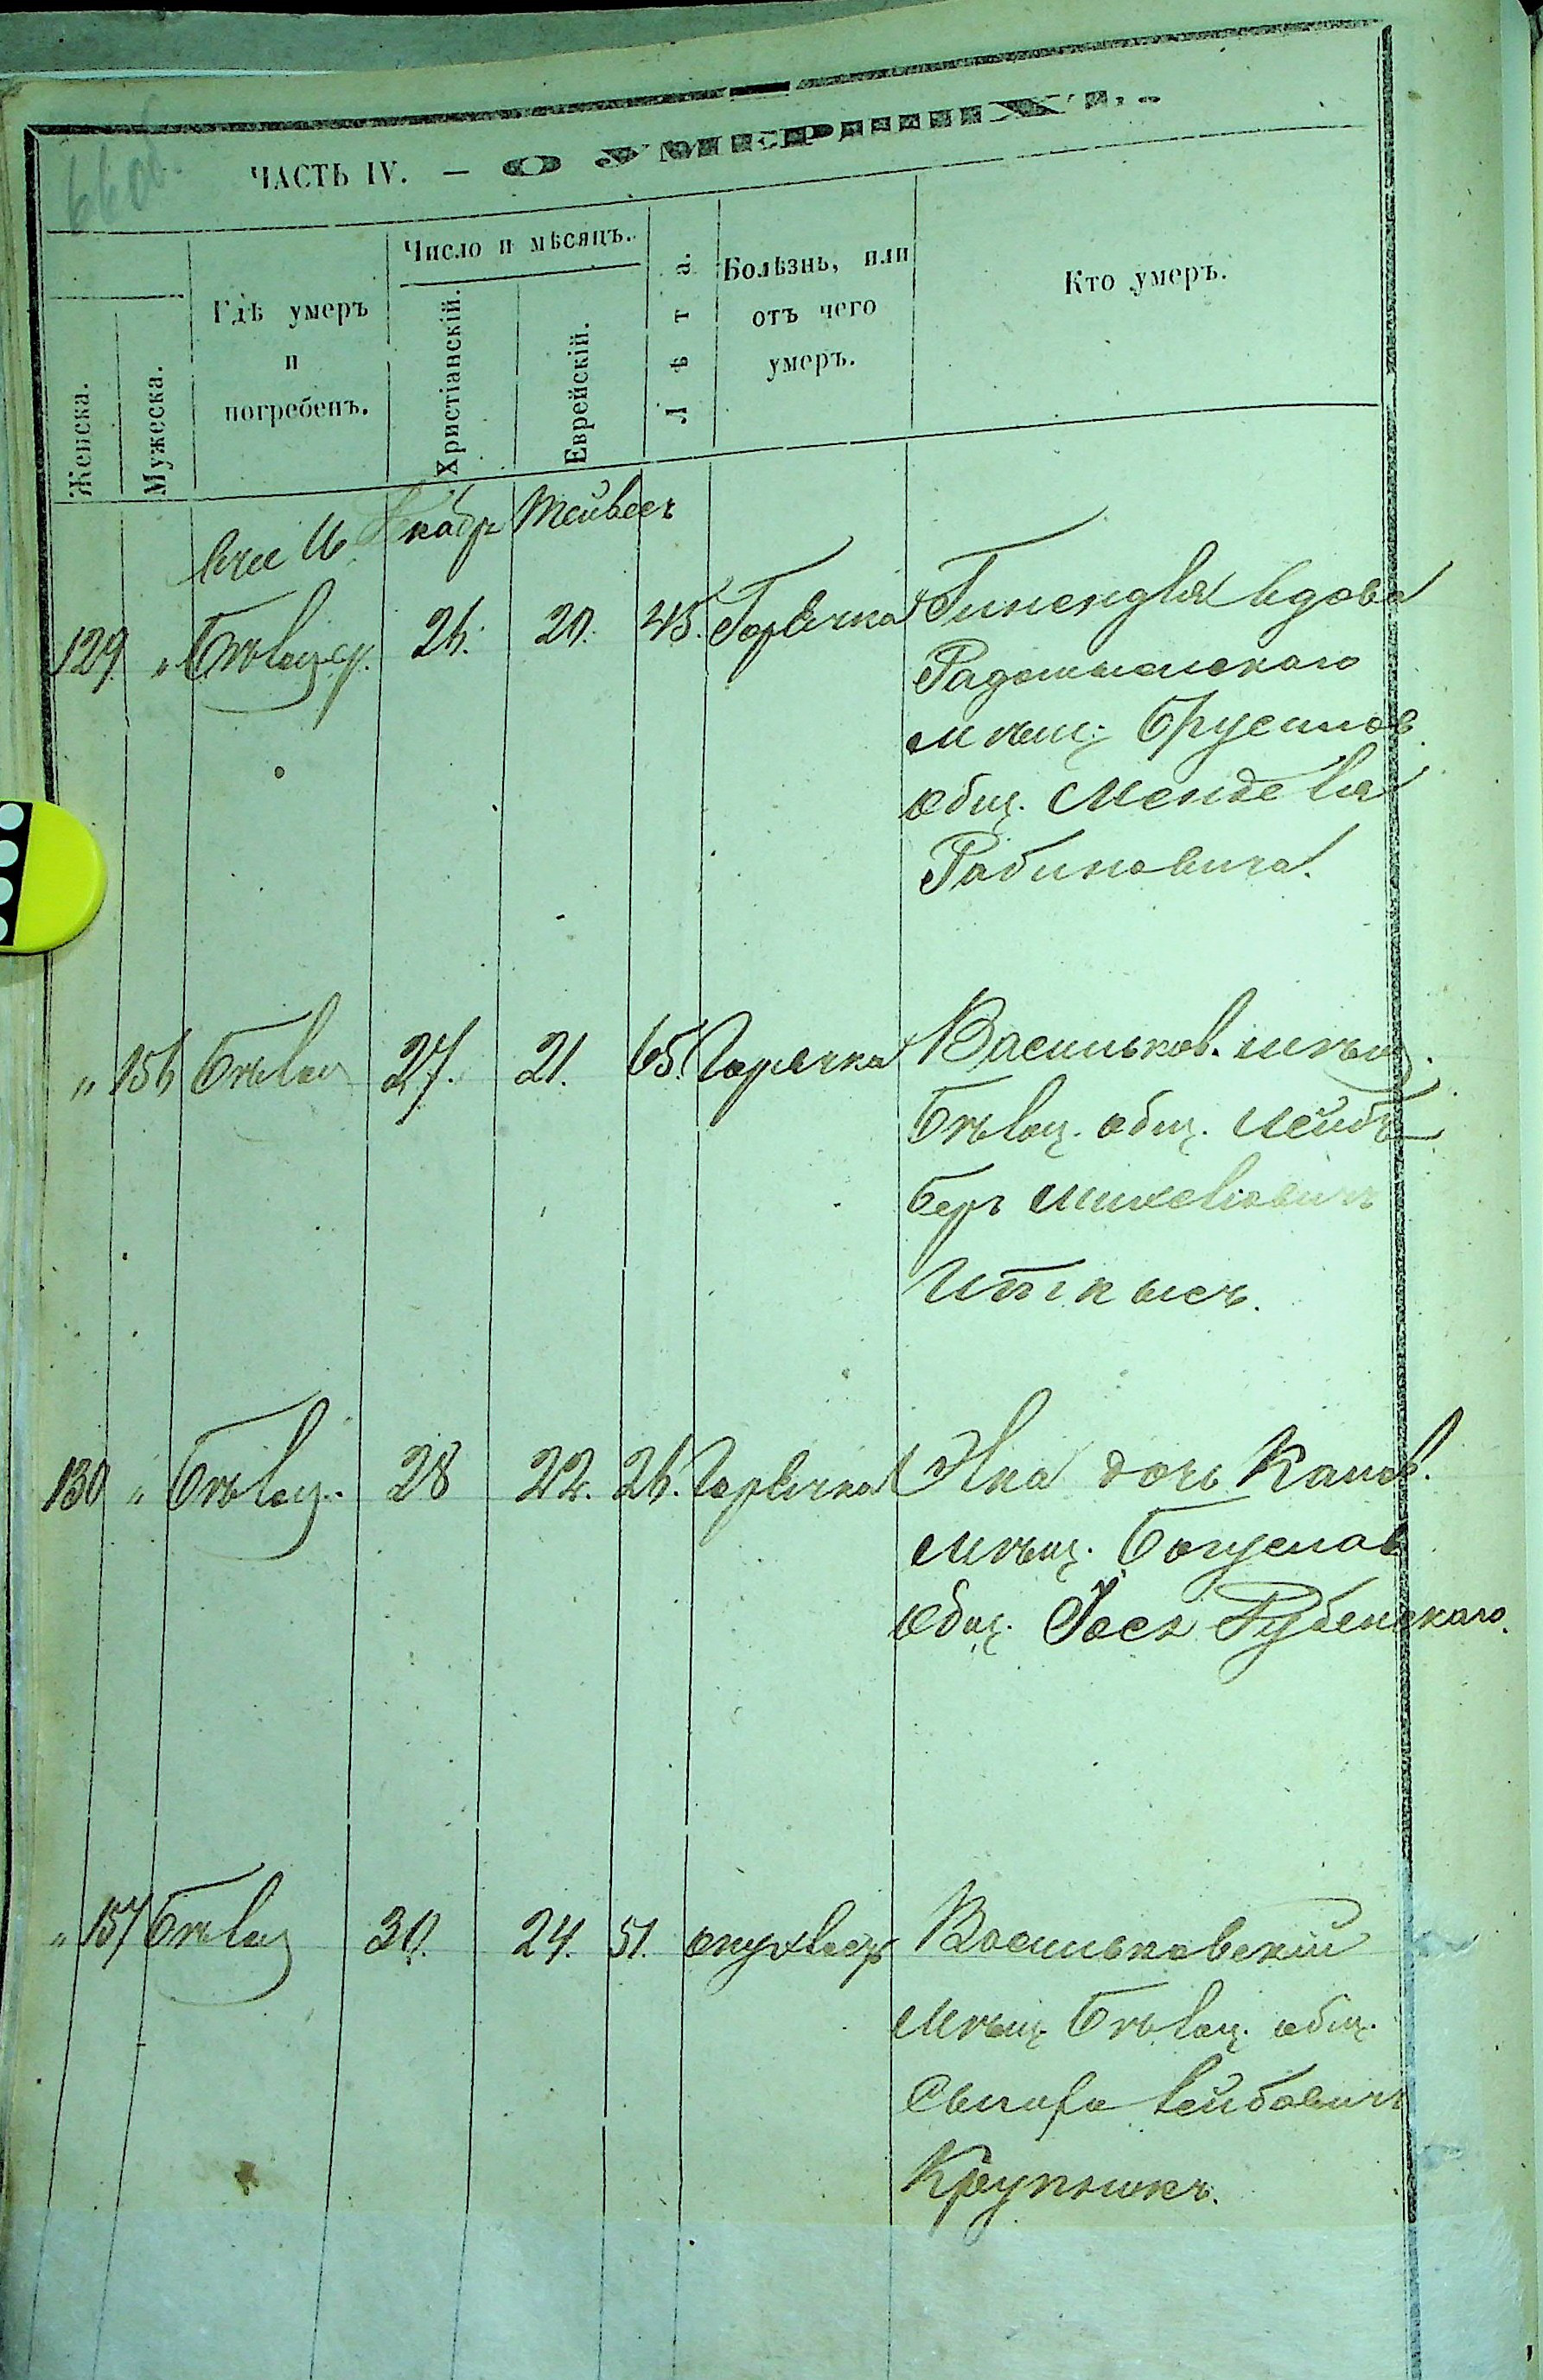 66об.
ЧАСТЬ IV. — О УМЕРШИХЪ.
Женска.
Мужеска.
Гдѣ умеръ
и
погребенъ.
Число и мѣсяцъ.
Христіанскій.
Еврейскій.
Лѣта.
Болѣзнь, или
отъ чего
умеръ.
Кто умеръ.
Декабр Тейвесъ
129 " Бѣлоцер. 26. 20. 45. Горячка Гинендля вдова
Радомысльскаго
мѣщ. Брусилов.
общ. Менделя
Рабиновича.
" 156 Бѣлоц 27. 21. 65. Горячка Васильков. мѣщ.
Бѣлоц. общ. Лейбъ
Беръ Михелiовичъ
130 " Бѣлоц. 28 22. 26. Горячка Хна дочь Канев.
мѣщ. Богуслав
общ. Іося Рубенскаго.
" 157 Бѣлоц 30. 24. 51. опухоль Васильковскій
мѣщ. Бѣлоц. общ.
Лейбовичъ
Крупникъ.